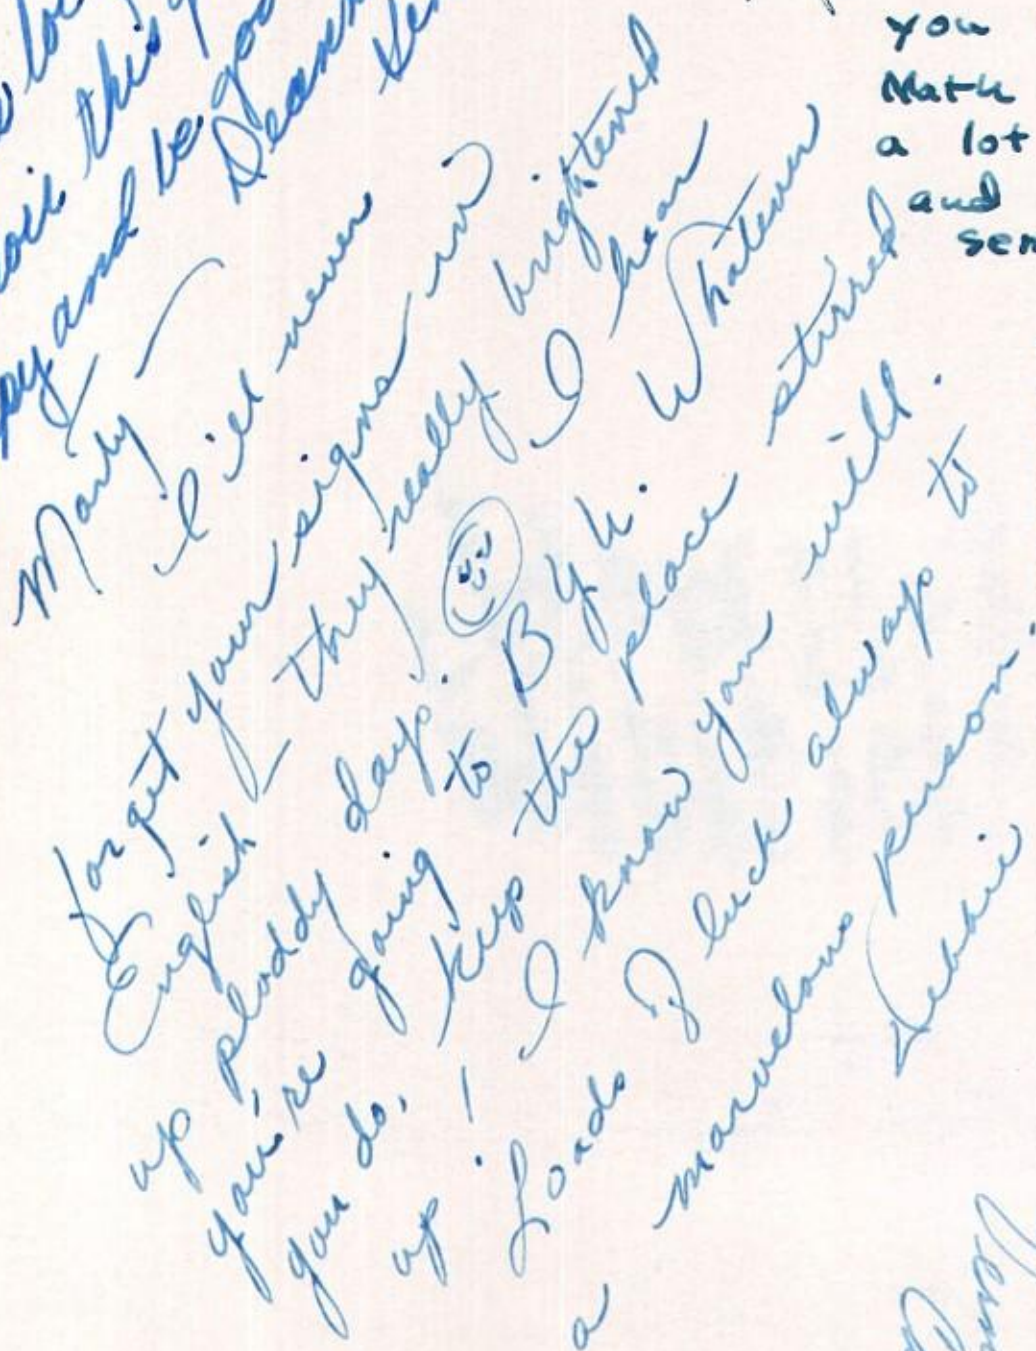 this
and be good
you
Math
a lot
and
Marty —
I'll never
forget your signs in
English — they really brightened
up ploddy days. I hear
you're going to B Y U. Whatever
you do, keep the place stirred
up! I know you will.
Loads of luck always to
a marvelous person.
Debbie